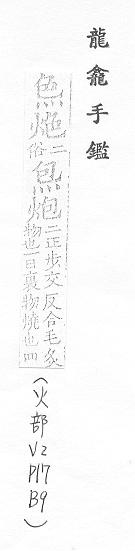 龍龕手鑑
二
俗
炰炮
二正步交反合毛炙
物也一曰裹物燒也四
(火部 V2 P117 B9)